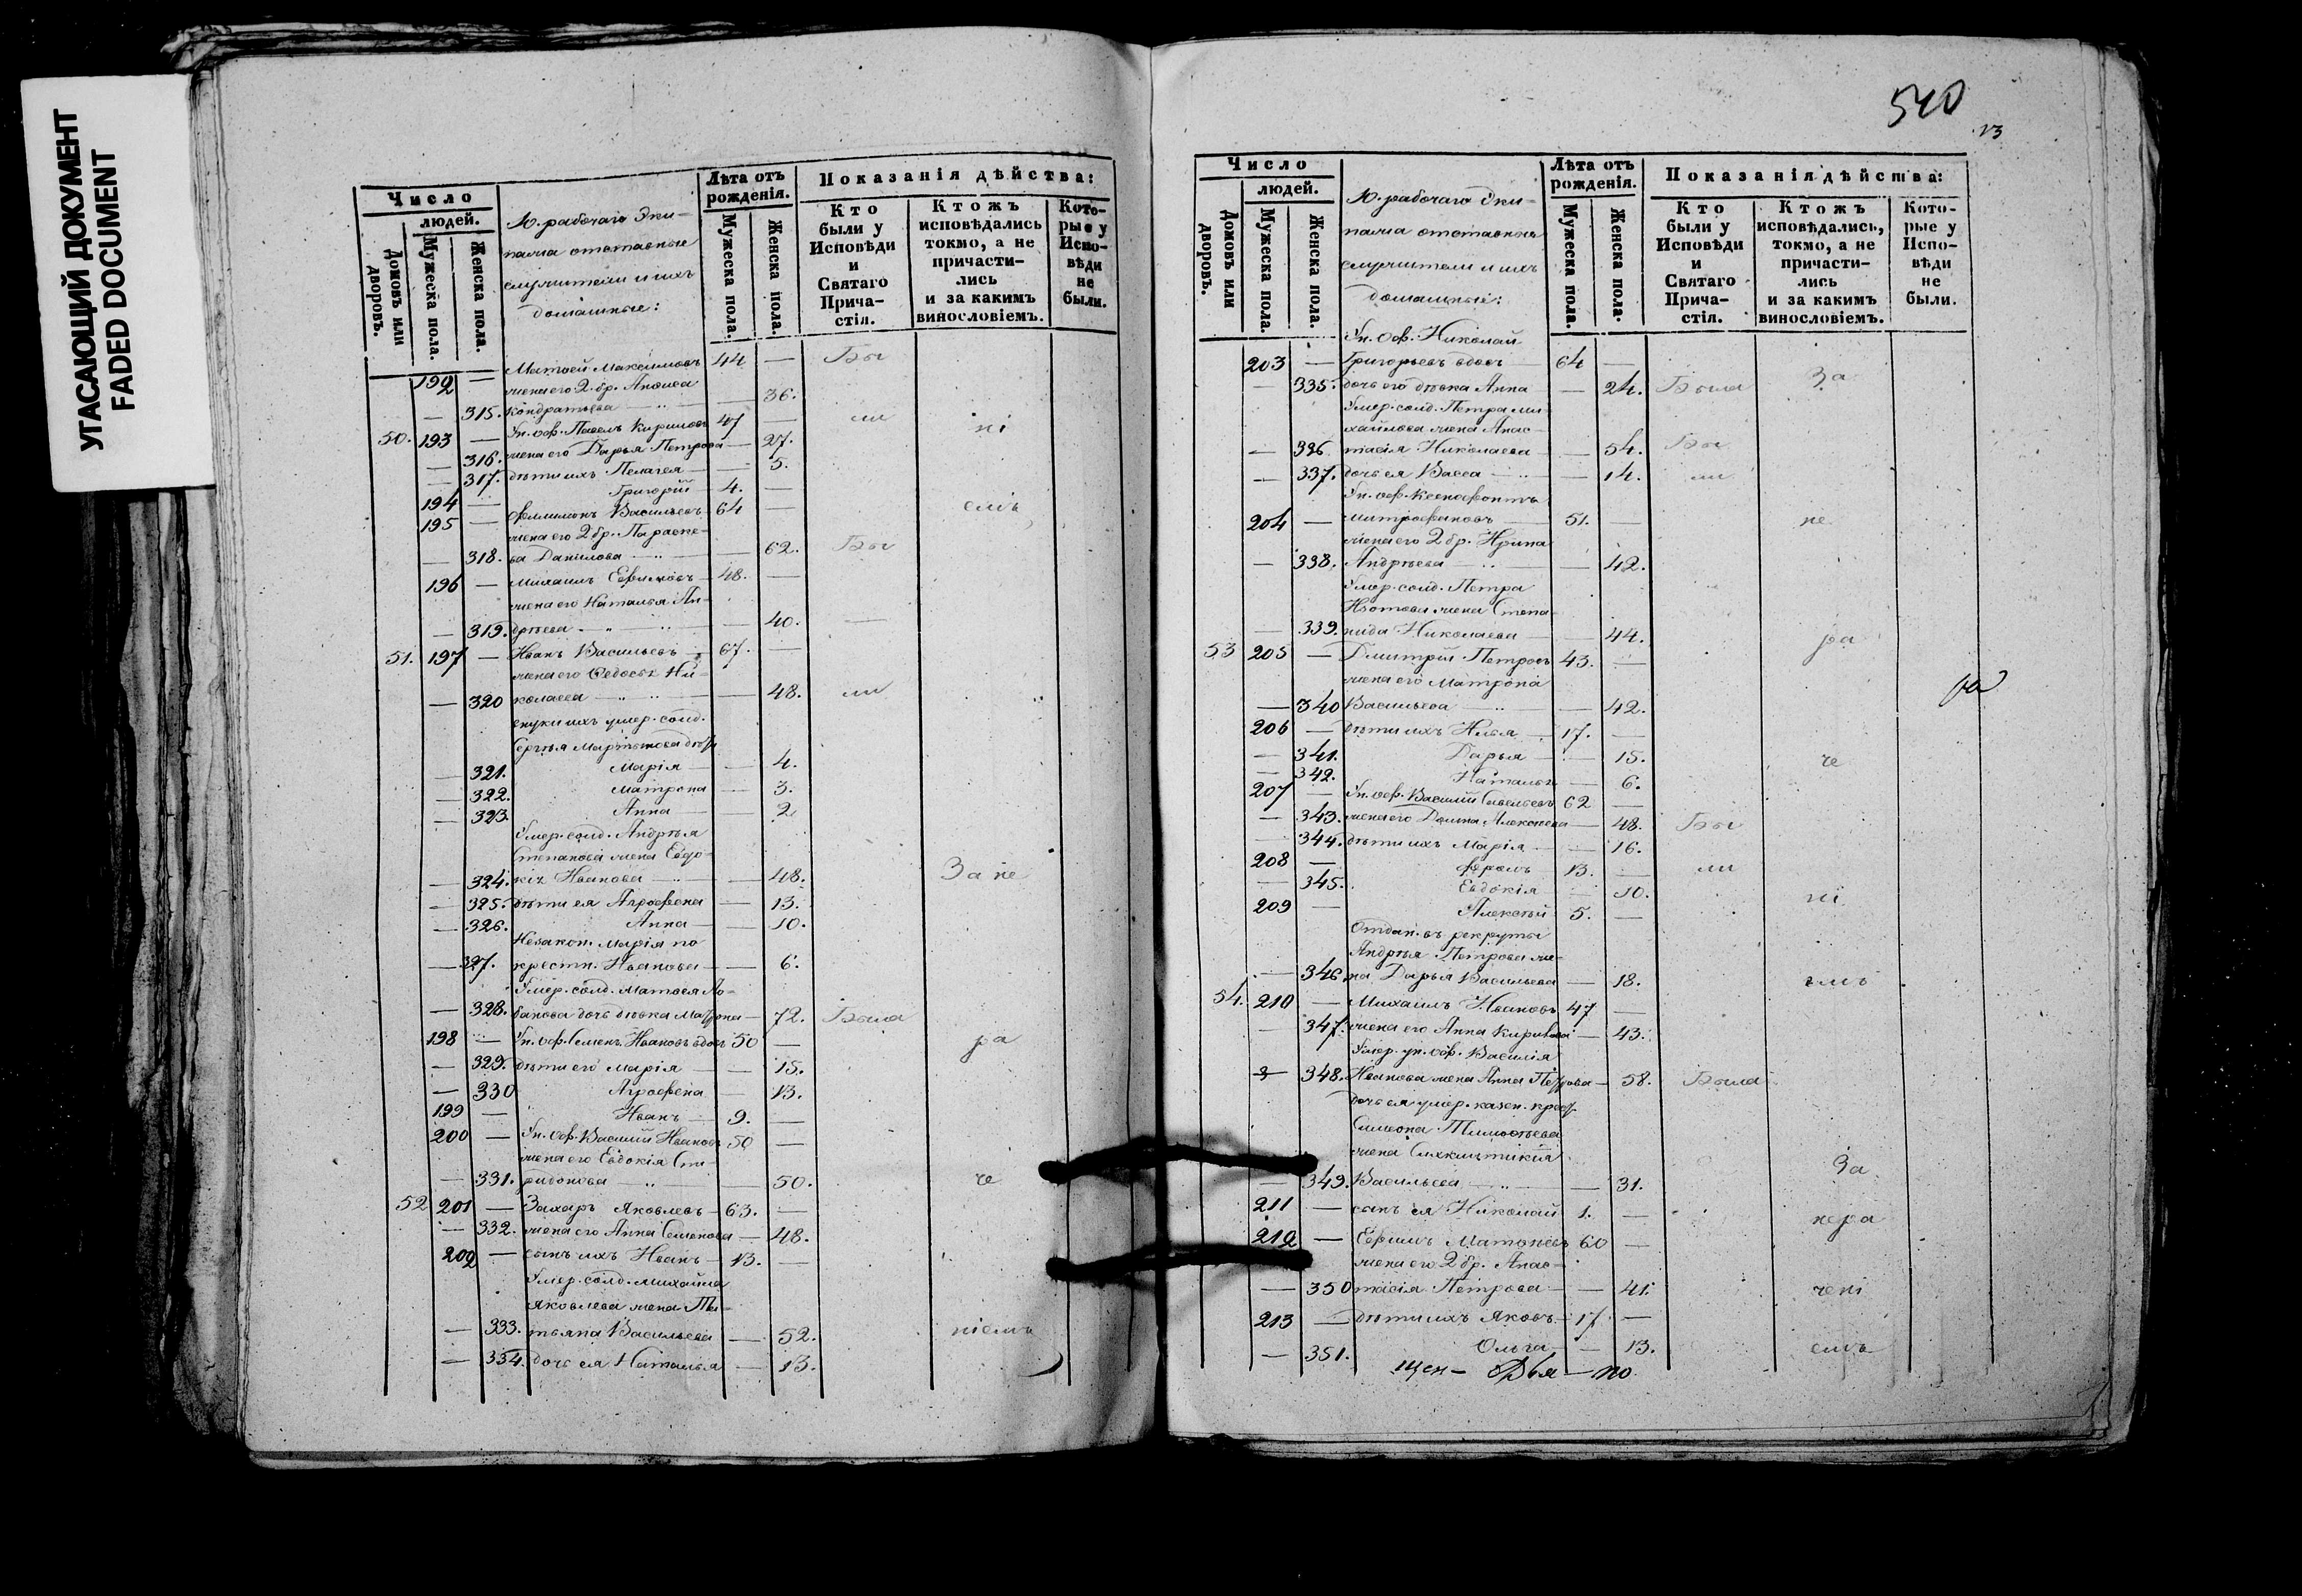 УГАСАЮЩИЙ ДОКУМЕНТ
FADED DOCUMENT
Число
людей.
Домовъ или дворовъ.
Мужеска пола.
Женска пола.
10. рабочаго Эки-
пажа отставные
служители и ихъ
домашные:
Лѣта отъ рожденія.
Мужеска пола.
Женска пола.
Показанія дѣйства:
Кто были у Исповѣди и Святаго Прича-стія.
Ктожъ исповѣдались токмо, а не причасти-лись и за какимъ винословіемъ.
Кото-рые у Испо-вѣди не были.
192 — Матѳей Максимовъ 44 — Бы
жена его 2 бр. Анфиса
— 315. Кондратьева — 36.
50. 193 — Ун. оф. Павелъ Кириловъ 47 — ли ні
— 316. жена его Дарья Петрова — 27.
— 317. дѣти ихъ Пелагея — 5.
194 — Григорій 4. —
195 — Филимонъ Васильевъ 64 — емъ
жена его 2 бр. Параске-
— 318. ва Данилова — 62. Бы
196 — Михаилъ Ефимовъ 48. —
жена его Наталья Ан-
— 319. дрѣева — 40.
51. 197 — Иванъ Васильевъ 67. —
жена его Ѳедосья Ни-
— 320 колаева — 48. ли
внуки ихъ умер. солд.
Сергѣя Мартынова дѣти
— 321. Марія — 4.
— 322. Матрона — 3.
— 323. Анна — 2
Умер. солд. Андрѣя
Степанова жена Евдо-
— 324. кія Иванова — 48. За не
— 325. дѣти ея Агрофена — 13.
— 326. Анна — 10.
Незакон. Марія по
— 327. крестн. Иванова — 6.
Умер. солд. Матвея Ло-
— 328. банова дочь дѣвка Матрона — 72. Была
198 — Ун. оф. Семенъ Ивановъ вдов 50 — ра
— 329. дѣти его Марія — 15.
— 330 Агрофена — 13.
199 — Иванъ 9. —
200 — Ун. оф. Василій Ивановъ 50 —
жена его Евдокія Спи-
— 331. ридонова — 50. че
52 201 — Захаръ Яковлевъ 63. —
— 332. жена его Анна Семенова — 48.
202 — сынъ ихъ Иванъ 13. —
Умер. солд. Михайла
Яковлева жена Та-
— 333. тьяна Васильева — 52. ніемъ
— 334. дочь ея Наталья — 13.
540
13
Число
людей.
Домовъ или дворовъ.
Мужеска пола.
Женска пола.
10. рабочаго Эки-
пажа отставные
служители и ихъ
домашные:
Лѣта отъ рожденія.
Мужеска пола.
Женска пола.
Показанія дѣйства:
Кто были у Исповѣди и Святаго Прича-стія.
Ктожъ исповѣдались, токмо, а не причасти-лись и за какимъ винословіемъ.
Кото-рые у Испо-вѣди не были.
Ун. оф. Николай
203 — Григорьевъ вдовъ 64 —
— 335. дочь его дѣвка Анна — 24. Была За
Умер. солд. Петра Ми-
хайлова жена Анас-
— 336 тасія Николаева — 54. Бы
— 337. дочь ея Васса — 14. ли
Ун. оф. Ксенофонтъ
204 — Митрофановъ 51. — не
жена его 2 бр. Ирина
— 338. Андрѣева — 42.
Умер. солд. Петра
Изотова жена Степа-
— 339. нида Николаева — 44.
53 205 — Дмитрій Петровъ 43. — ра
жена его Матрона
— 340 Васильева — 42.
206 — дѣти ихъ Илья 17. —
— 341. Дарья — 15. че
— 342. Наталья — 6.
207 — Ун. оф. Василій Савельевъ 62 —
— 343. жена его Домна Алексѣева — 48. Бы
— 344. дѣти ихъ Марія — 16.
208 — Фролъ 13. — ли
— 345. Евдокія — 10.
209 — Алексѣй 5. — ні
Отдан. въ рекруты
Андрѣя Петрова же-
— 346 на Дарья Васильева — 18. емъ
54. 210 — Михаилъ Ивановъ 47 —
— 347. жена его Анна Кирилова — 43.
Умер. ун. оф. Василія
— 348. Иванова жена Анна Петрова — 58. Была
дочь ея умер. казен. крест.
Симеона Тимофѣева
жена
— 349. Васильева — 31. За
211 — сынъ ея Николай 1. — нера
212 — Ефимъ Матвѣевъ 60 —
жена его 2 бр. Анас-
— 350 тасія Петрова — 41. чені
213 — дѣти ихъ Яковъ 17 —
— 351. Ольга — 13. емъ